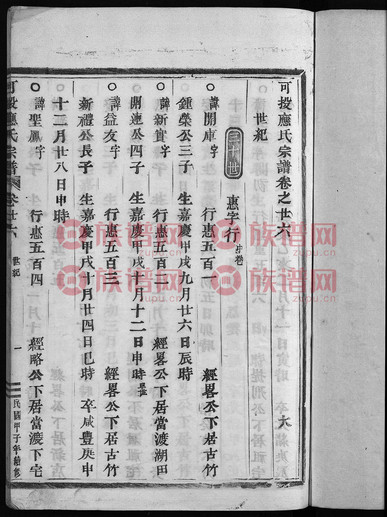 可投應氏宗譜卷之廿六
世紀
三十世 惠字行
諱開庫字 行惠五百 經畧公下居古竹
鍾榮公三子 生嘉慶甲戌九月廿六日辰時
諱新實字 行惠五百二 經畧公下居當渡湖田
開連公四子 生嘉慶甲戌十月十二日申時
諱益友字 行惠五百三 經畧公下居古竹
新禮公長子 生嘉慶甲戌十月廿四日巳時 卒咸豐庚申
十二月廿八日申時
諱聖鳳字 行惠五百四 經略公下居當渡下宅
可投應氏宗譜 卷廿六 世紀 一 民國甲子年續修
族谱网
www.zupu.cn